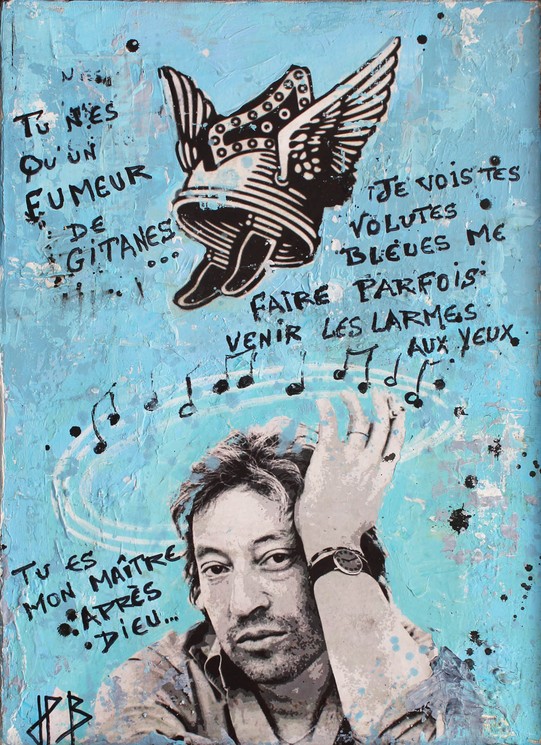 TU N'ES
QU'UN
FUMEUR
DE
GITANES
...
JE VOIS TES
VOLUTES
BLEUES ME
FAIRE PARFOIS
VENIR LES LARMES
AUX YEUX
TU ES
MON MAÎTRE
APRÈS
DIEU...
JPB